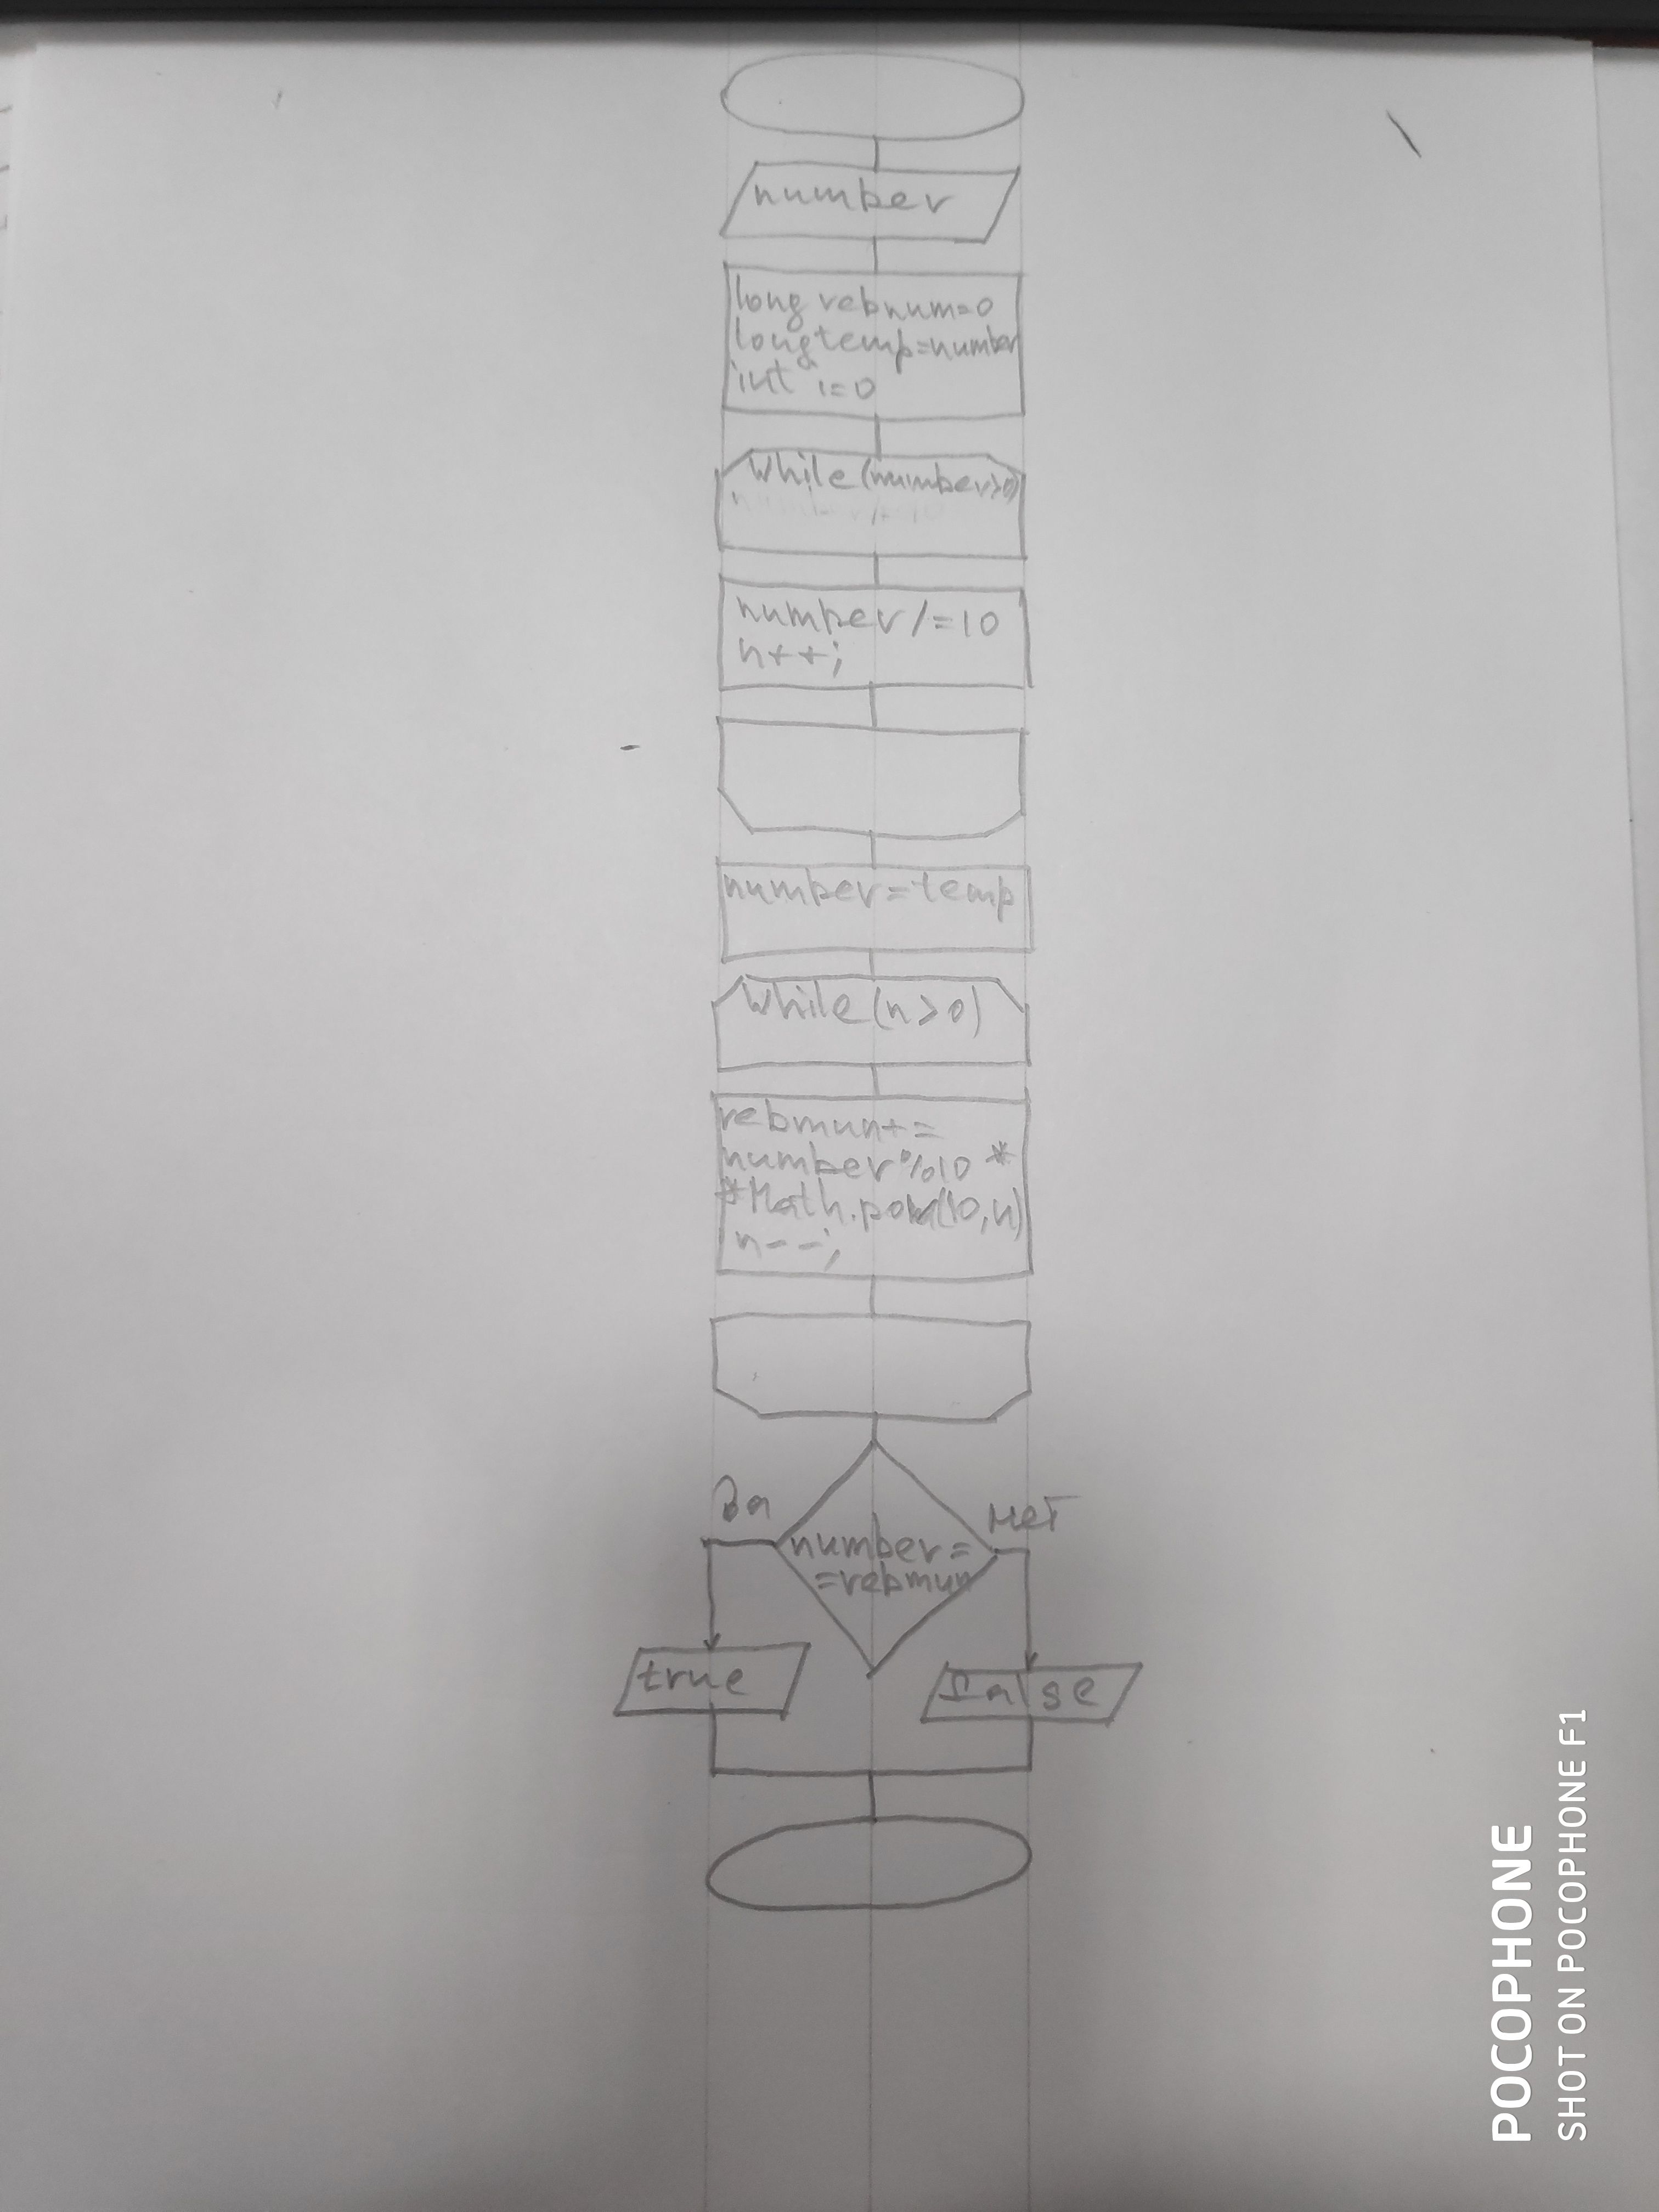 number
long rebnum=0
long temp=number
int i=0
while (number>0)
number/=10
n++;
number=temp
while (n>0)
rebmun+=
number%10 *
*Math.pow(10,n)
n--;
да
нет
number=
=rebmun
true
false
POCOPHONE
SHOT ON POCOPHONE F1